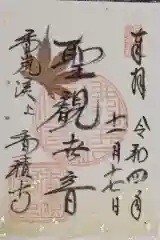 奉拝
令和四年
十一月十七日
聖観世音
香積寺